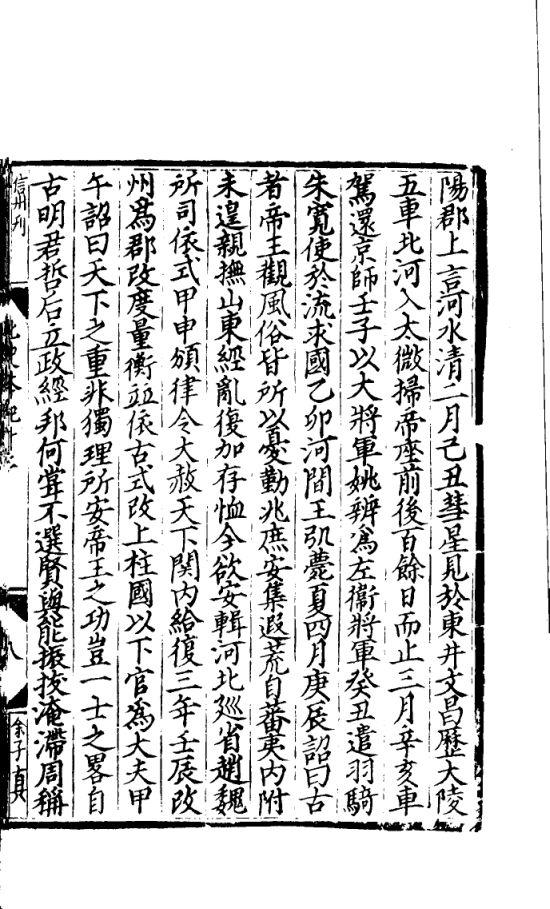 陽郡上言河水清二月己丑彗星見於東井文昌歷大陵
五車北河入太微掃帝座前後百餘日而止三月辛亥車
駕還京師壬子以大將軍姚辨爲左衞將軍癸丑遣羽騎
朱寬使於流求國乙卯河間王弘薨夏四月庚辰詔曰古
者帝王觀風俗皆所以憂勤兆庶安集遐荒自蕃夷內附
未遑親撫山東經亂復加存恤今欲安輯河北廵省趙魏
所司依式甲申頒律令大赦天下関內給復三年壬辰改
州爲郡改度量衡並依古式改上柱國以下官爲大夫甲
午詔曰天下之重非獨理所安帝王之功豈一士之畧自
古明君哲后立政經邦何甞不選賢與能振拔淹滯周稱
信州刋
北史本紀十二
八
余子真